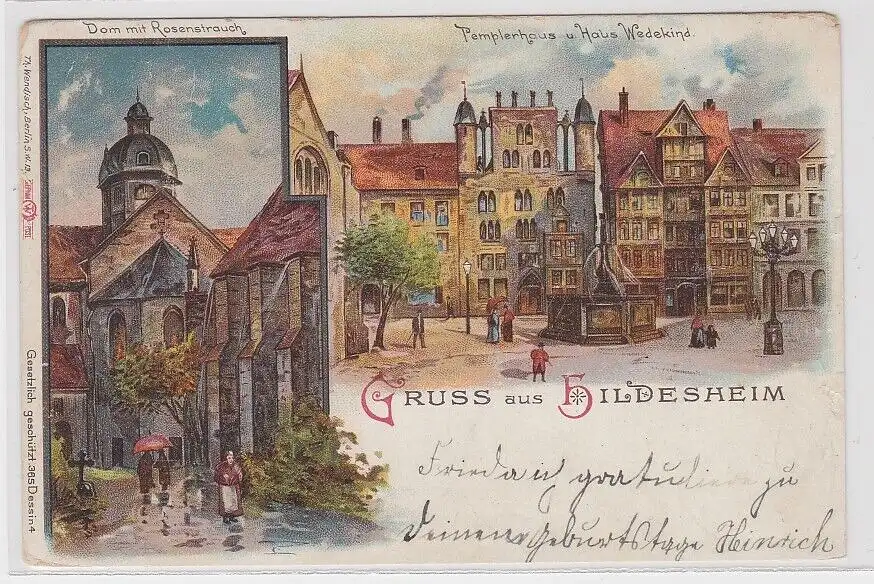 Dom mit Rosenstrauch
Templerhaus u. Haus Wedekind.
Th. Wendisch, Berlin S.W. 19.
Gesetzlich geschützt. 365 Dessin 4
GRUSS aus HILDESHEIM
Frieda ich gratuliere zu
deinem Geburtstage Heinrich